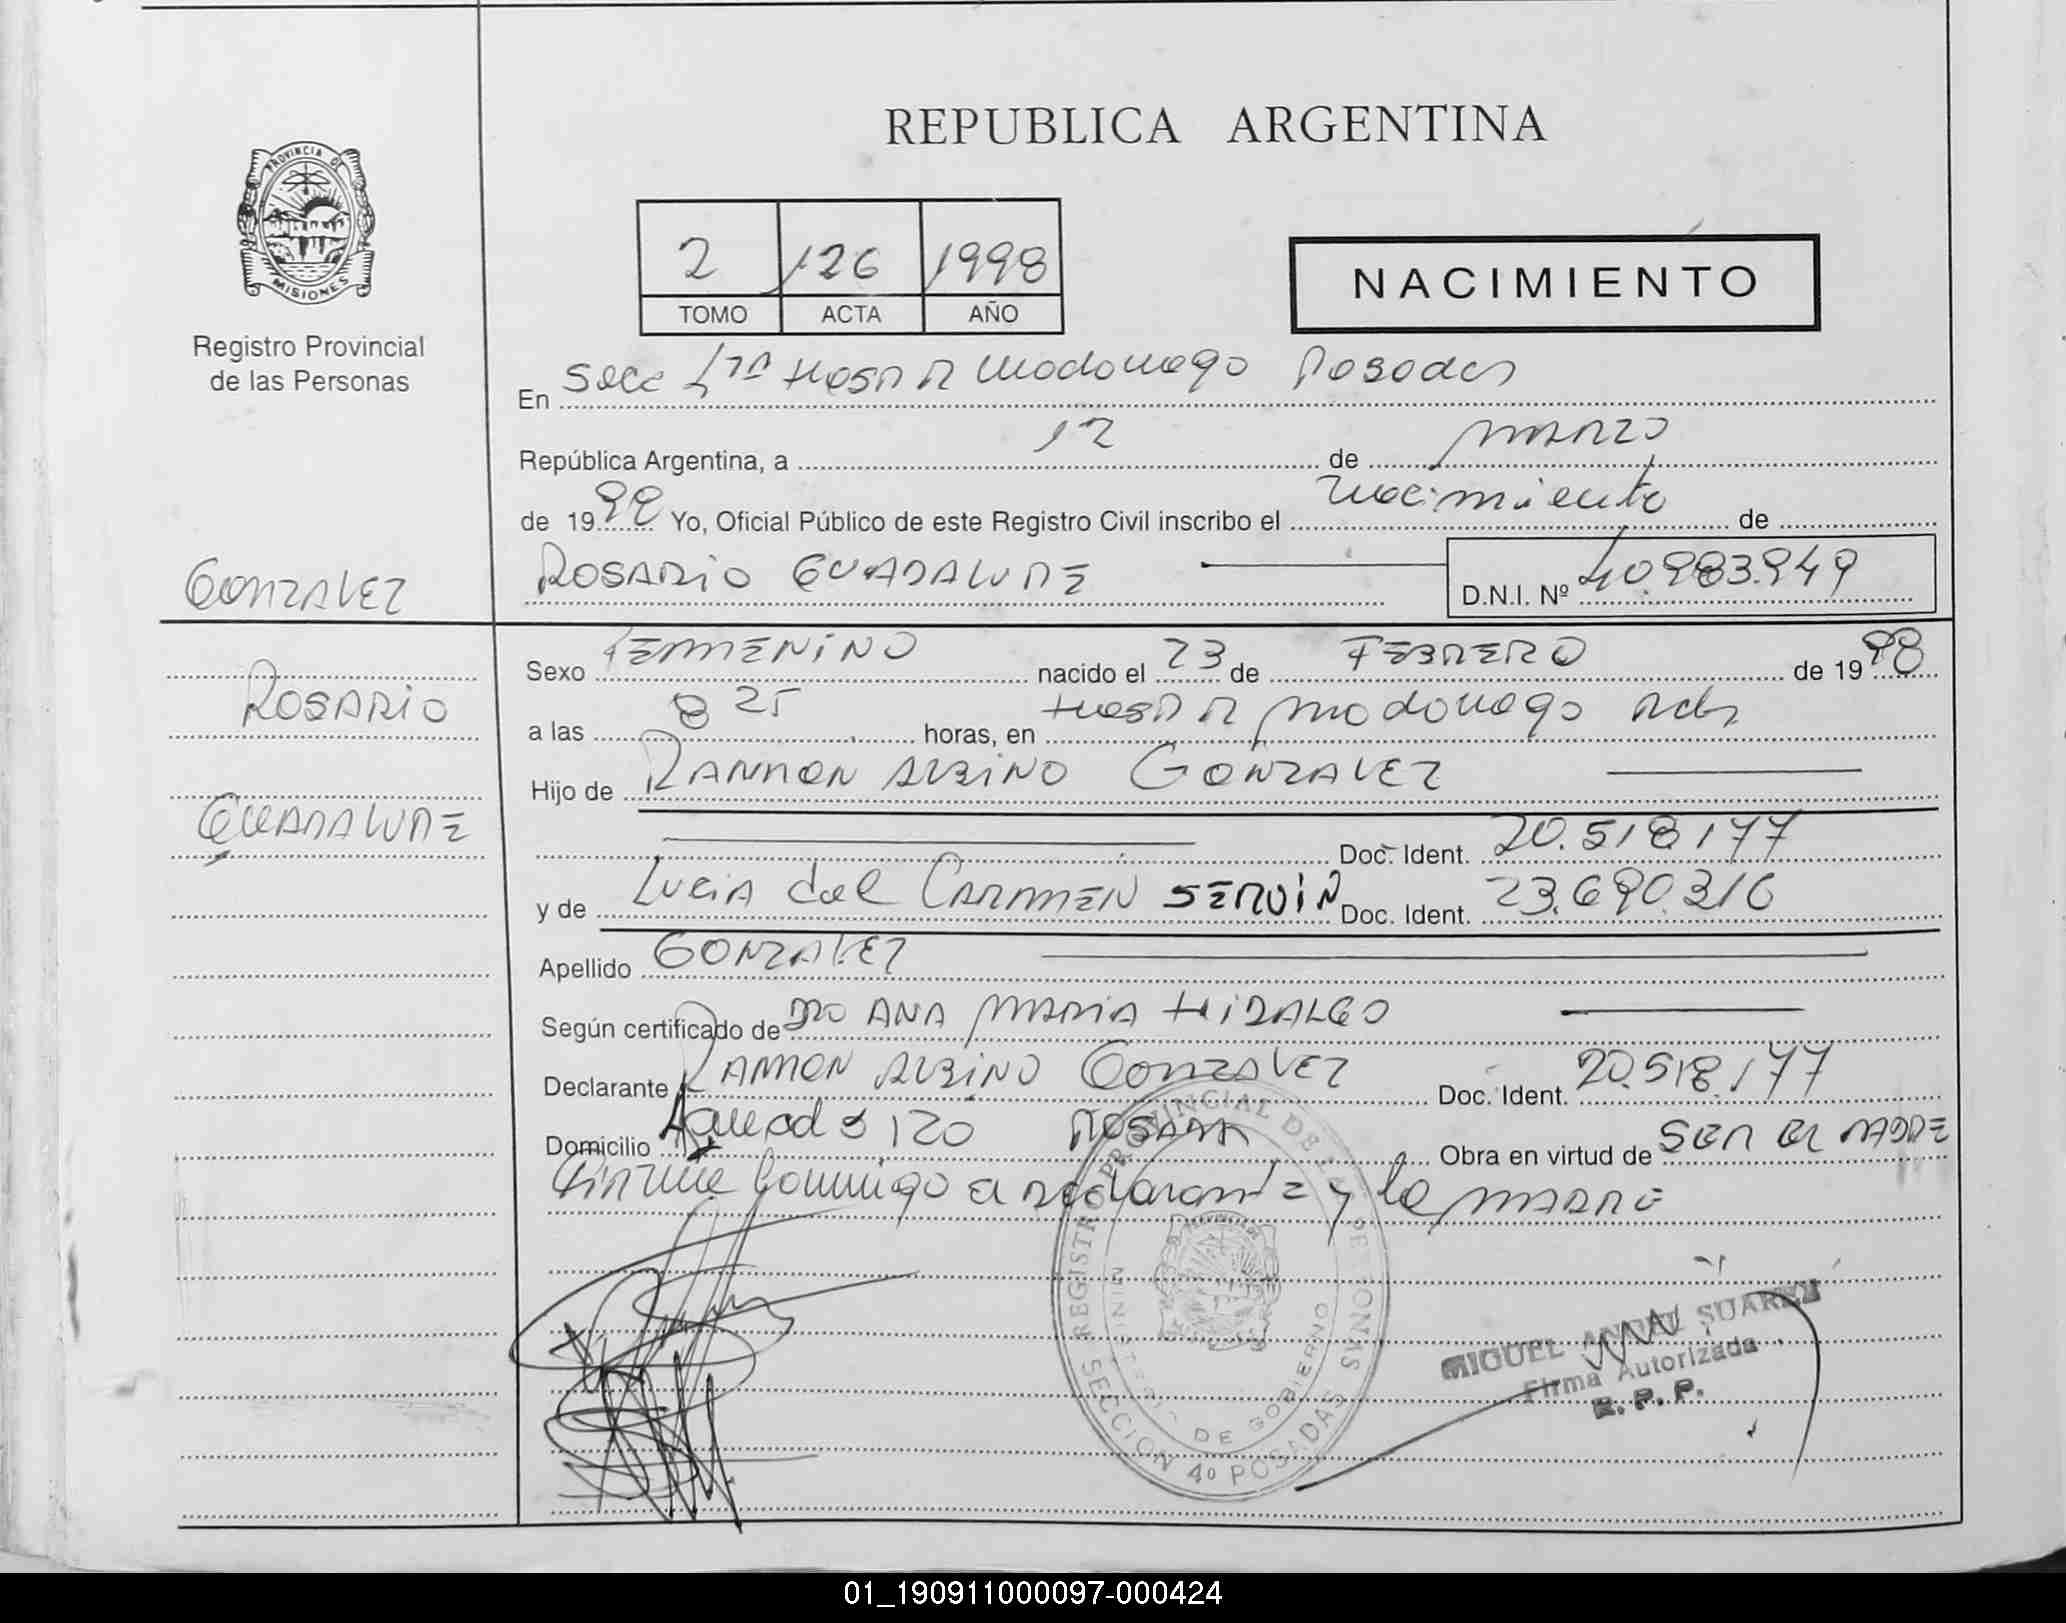 REPUBLICA ARGENTINA
PROVINCIA DE
MISIONES
Registro Provincial
de las Personas
2 126 1998
TOMO ACTA AÑO
NACIMIENTO
En Secc 4ta Hosp R Madariaga Posadas
República Argentina, a 12 de MARZO
de 1998 Yo, Oficial Público de este Registro Civil inscribo el nacimiento de
GONZALEZ
ROSARIO GUADALUPE D.N.I. Nº 40.983.949
Sexo FEMENINO nacido el 23 de FEBRERO de 1998
ROSARIO
a las 8 25 horas, en Hosp R Madariaga Pdas
Hijo de RAMON ALBINO GONZALEZ
GUADALUPE
Doc. Ident. 20.518.177
y de LUCIA del CARMEN SERVIN Doc. Ident. 23.690.316
Apellido GONZALEZ
Según certificado de DRA ANA MARIA HIDALGO
Declarante RAMON ALBINO GONZALEZ Doc. Ident. 20.518.177
Domicilio 120 POSADAS Obra en virtud de SER EL PADRE
Firma conmigo el declarante y la MADRE
REGISTRO PROVINCIAL DE LAS PERSONAS
MINISTERIO DE GOBIERNO
SECCION 4º POSADAS
MIGUEL ANGEL SUAREZ
Firma Autorizada
R. P. P.
01_190911000097-000424